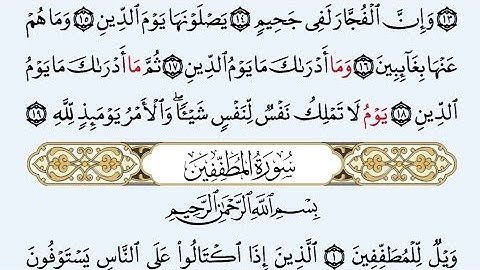 ﴿١٣﴾ وَإِنَّ ٱلْفُجَّارَ لَفِى جَحِيمٍ ﴿١٤﴾ يَصْلَوْنَهَا يَوْمَ ٱلدِّينِ ﴿١٥﴾ وَمَا هُمْ
عَنْهَا بِغَآئِبِينَ ﴿١٦﴾ وَمَآ أَدْرَىٰكَ مَا يَوْمُ ٱلدِّينِ ﴿١٧﴾ ثُمَّ مَآ أَدْرَىٰكَ مَا يَوْمُ
ٱلدِّينِ ﴿١٨﴾ يَوْمَ لَا تَمْلِكُ نَفْسٌ لِّنَفْسٍ شَيْـًٔا ۖ وَٱلْأَمْرُ يَوْمَئِذٍ لِّلَّهِ ﴿١٩﴾
سُورَةُ المُطَفِّفِينَ
بِسْمِ ٱللَّهِ ٱلرَّحْمَٰنِ ٱلرَّحِيمِ
وَيْلٌ لِّلْمُطَفِّفِينَ ﴿١﴾ ٱلَّذِينَ إِذَا ٱكْتَالُوا۟ عَلَى ٱلنَّاسِ يَسْتَوْفُونَ